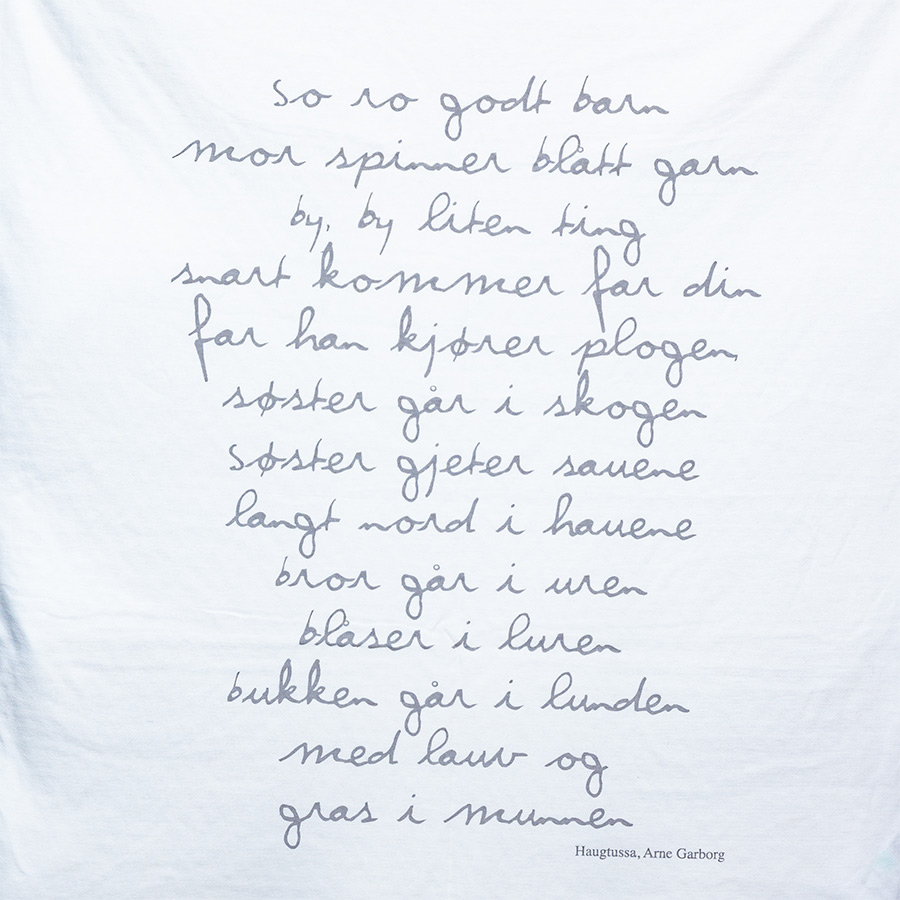 so ro godt barn
mor spinner blått garn.
by, by liten ting
snart kommer far din
far han kjører plogen,
søster går i skogen
søster gjeter sauene
langt nord i hauene
bror går i uren
blåser i luren
bukken går i lunden
med lauv og
gras i munnen
Haugtussa, Arne Garborg